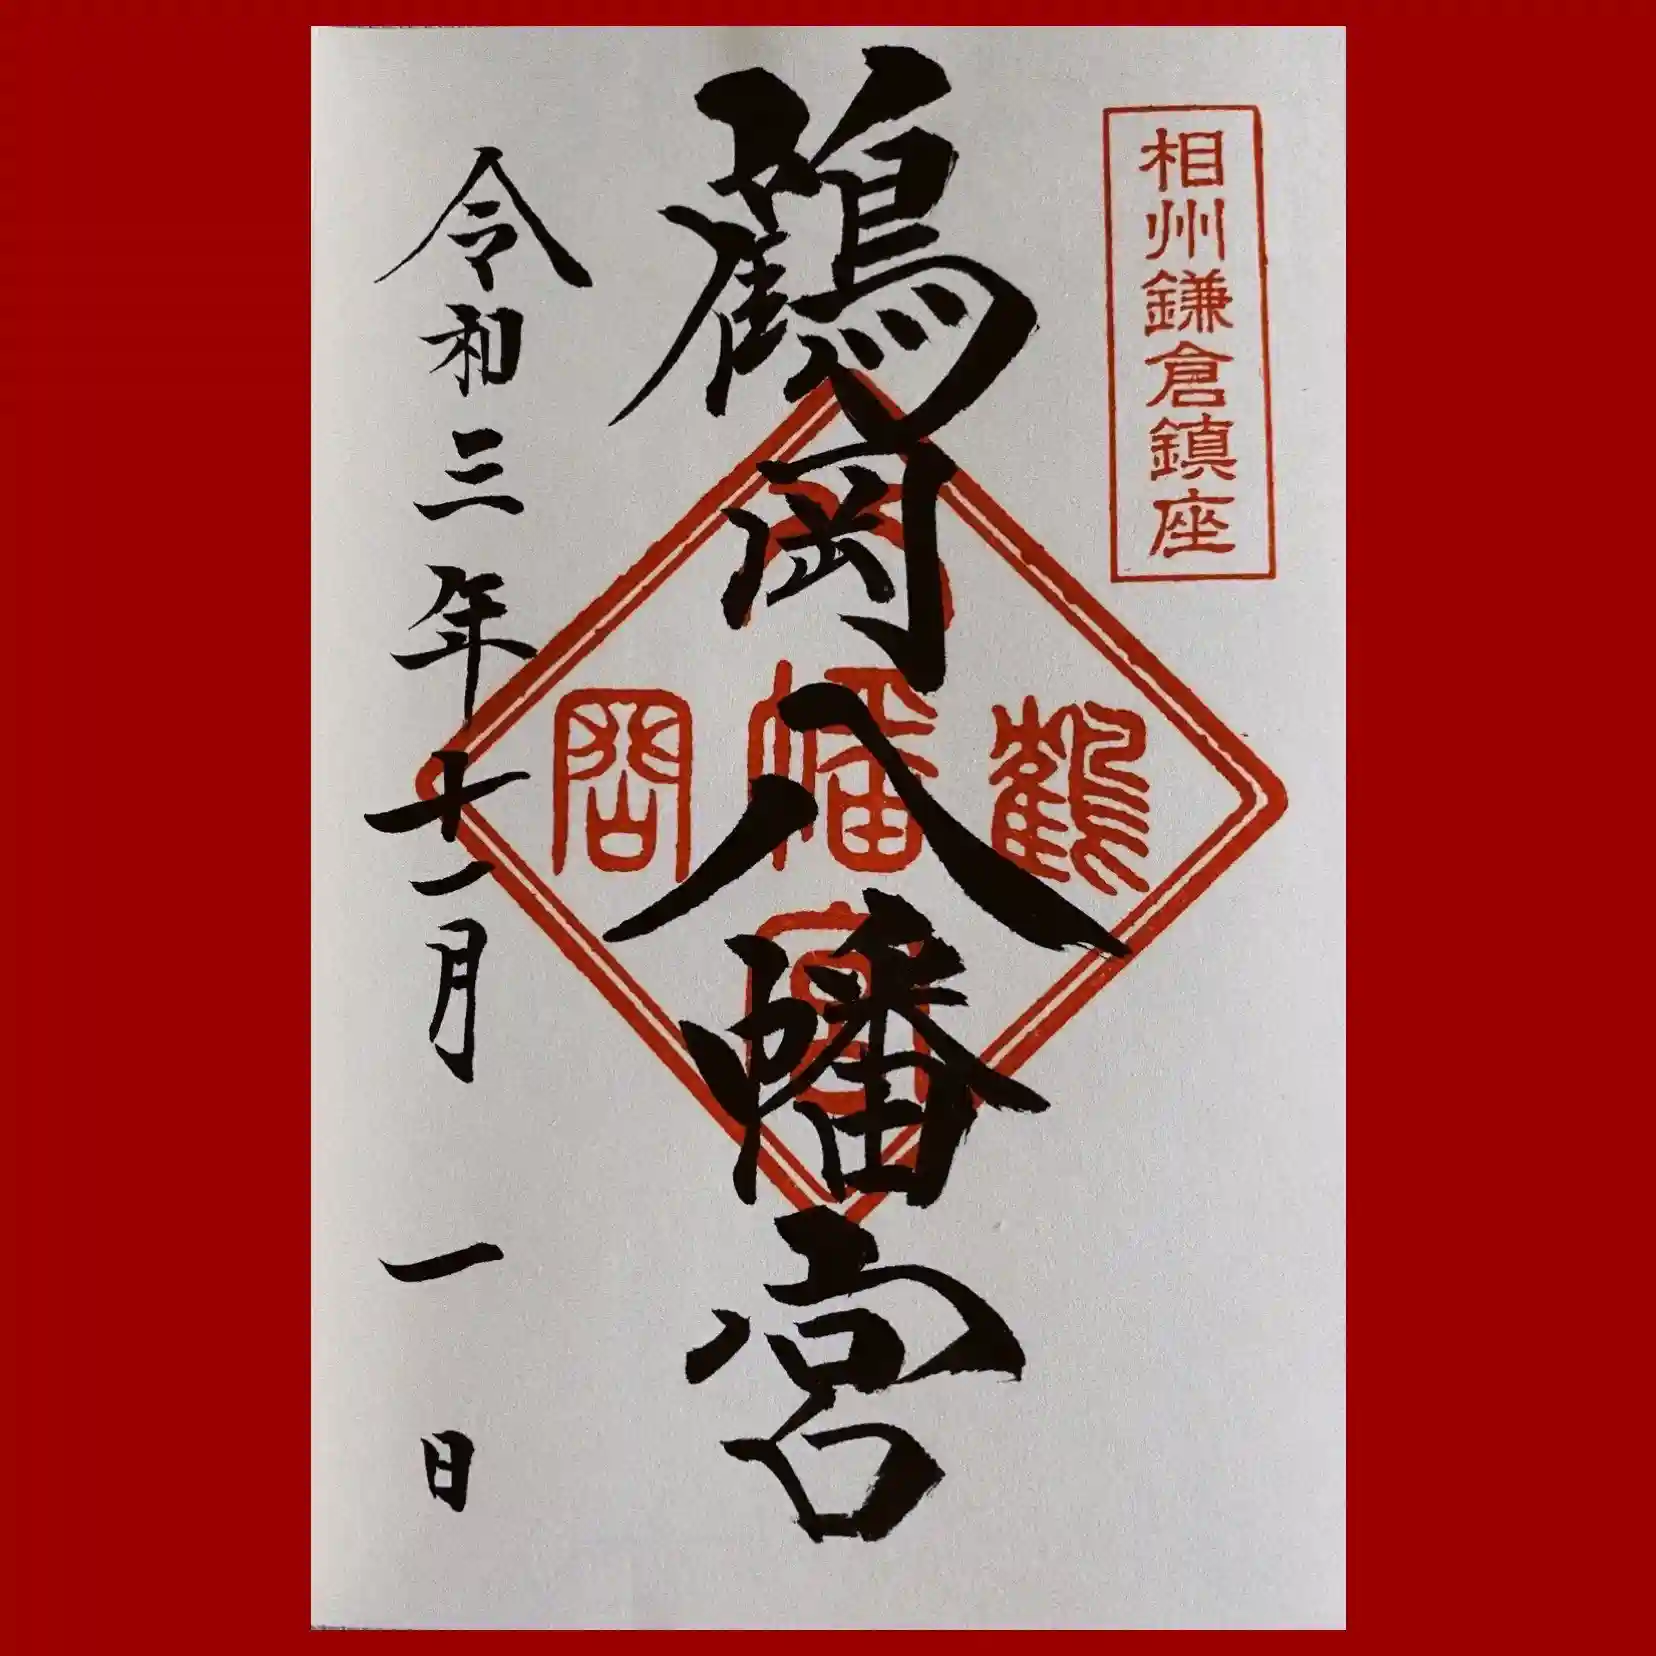 相州鎌倉鎮座
鶴岡八幡宮
八
鶴幡岡
宮
令和三年十一月一日